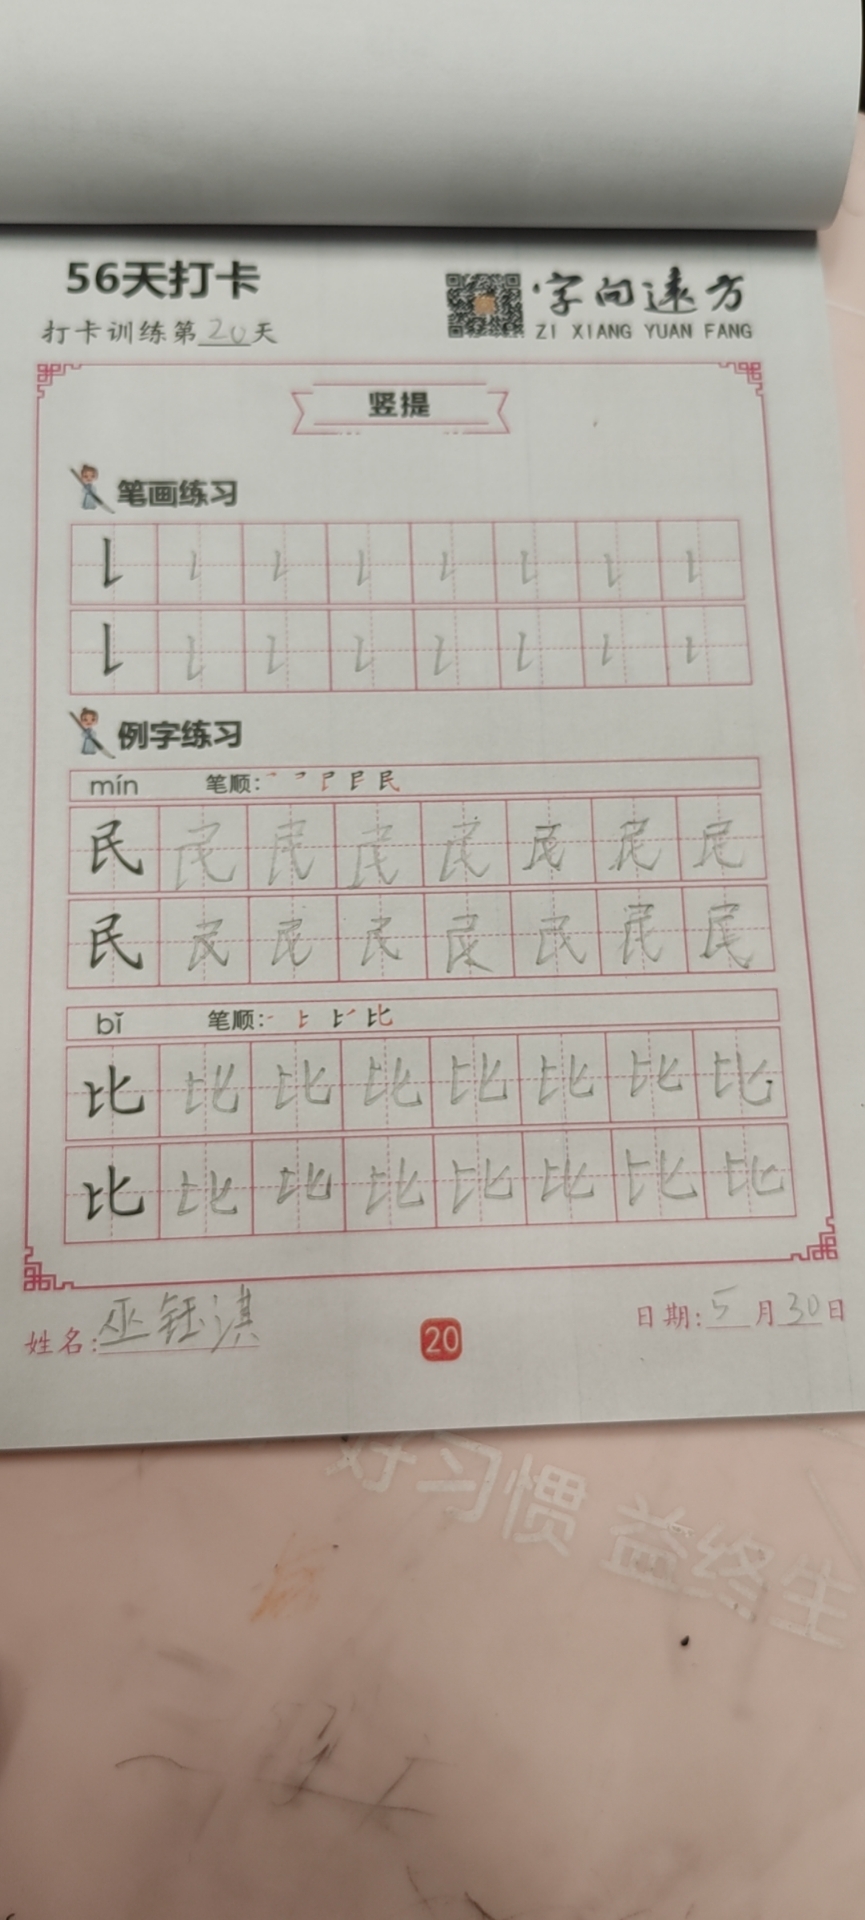 56天打卡
字向远方
打卡训练第20天
ZI XIANG YUAN FANG
竖提
笔画练习
例字练习
mín 笔顺:
民 民 民 民 民 民 民 民
民 民 民 民 民 民 民 民
bǐ 笔顺: 比
比 比 比 比 比 比 比 比
比 比 比 比 比 比 比 比
姓名:巫钰淇
20
日期:5月30日
好习惯 益终生